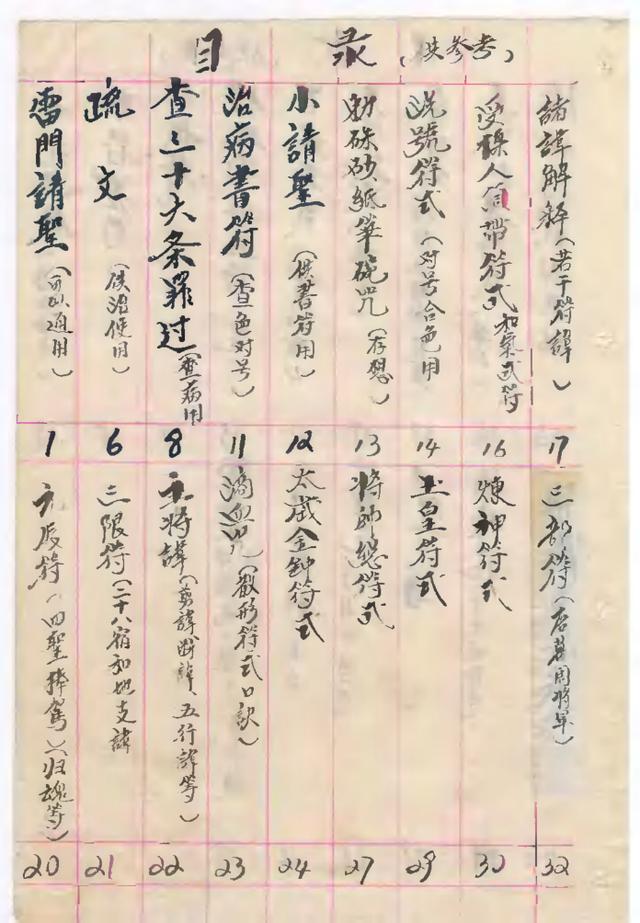 目 录 (供参考)
雷門請聖(可以通用)
1
疏 文(供治使用)
6
查三十六条罪过(查病用)
8
治病書符(查色对号)
11
小請聖(供書符用)
12
勅硃砂紙筆硯咒(存想)
13
洗號符式(对号合色用)
14
受祿人筒帶符式 和氣式符
16
諸諱解釋(若干符諱)
17
元辰符(四聖捧駕)(归魂等)
20
三限符(二十八宿和地支諱
21
主将諱(剪諱斷諱、五行諱等)
22
滴血咒(散形符式口訣)
23
太歲金鈡符式
24
将帥總符式
27
玉皇符式
29
煉神符式
30
三部符(唐葛周將軍)
32